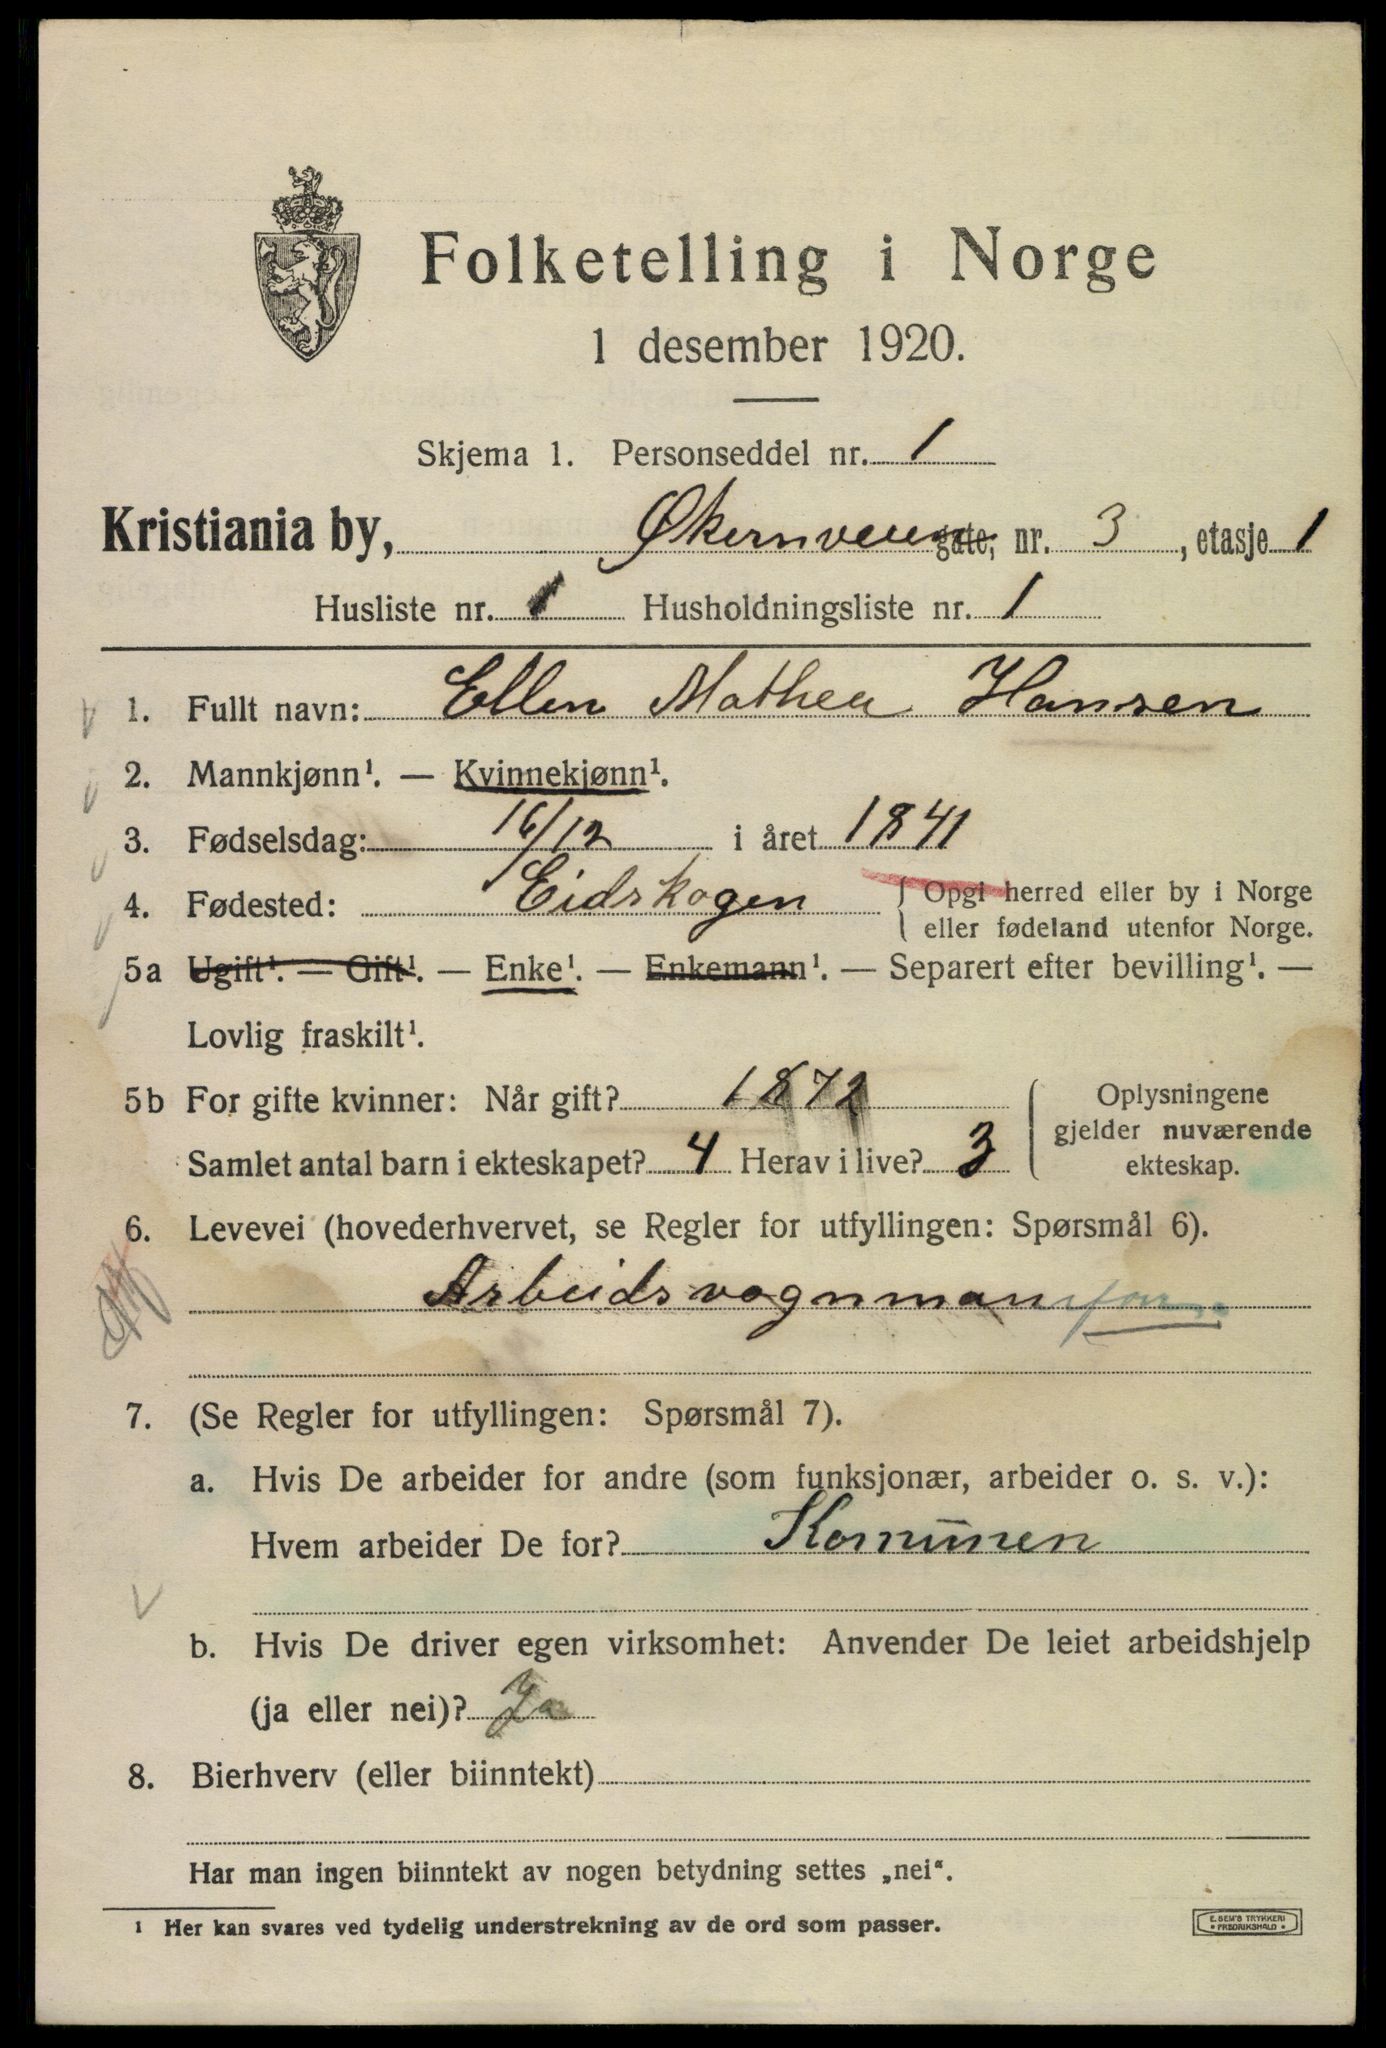 Folketelling i Norge
1 desember 1920.
Skjema 1. Personseddel nr. 1
Kristiania by, Økernveien gate, nr. 3, etasje 1
Husliste nr. 1 Husholdningsliste nr. 1
1. Fullt navn: Ellen Mathea Hansen
2. Mannkjønn¹. — Kvinnekjønn¹.
3. Fødselsdag: 16/12 i året 1841
4. Fødested: Eidskogen { Opgi herred eller by i Norge
eller fødeland utenfor Norge.
5a Ugift¹. — Gift¹. — Enke¹. — Enkemann¹. — Separert efter bevilling¹. —
Lovlig fraskilt¹.
5b For gifte kvinner: Når gift? 1872
Samlet antal barn i ekteskapet? 4 Herav i live? 3
Oplysningene
gjelder nuværende
ekteskap.
6. Levevei (hovederhvervet, se Regler for utfyllingen: Spørsmål 6).
Arbeidsvognman
7. (Se Regler for utfyllingen: Spørsmål 7).
a. Hvis De arbeider for andre (som funksjonær, arbeider o. s. v.):
Hvem arbeider De for? Komunen
b. Hvis De driver egen virksomhet: Anvender De leiet arbeidshjelp
(ja eller nei)? Ja
8. Bierhverv (eller biinntekt)
Har man ingen biinntekt av nogen betydning settes „nei“.
¹ Her kan svares ved tydelig understrekning av de ord som passer.
E. SEM'S TRYKKERI
FREDRIKSHALD